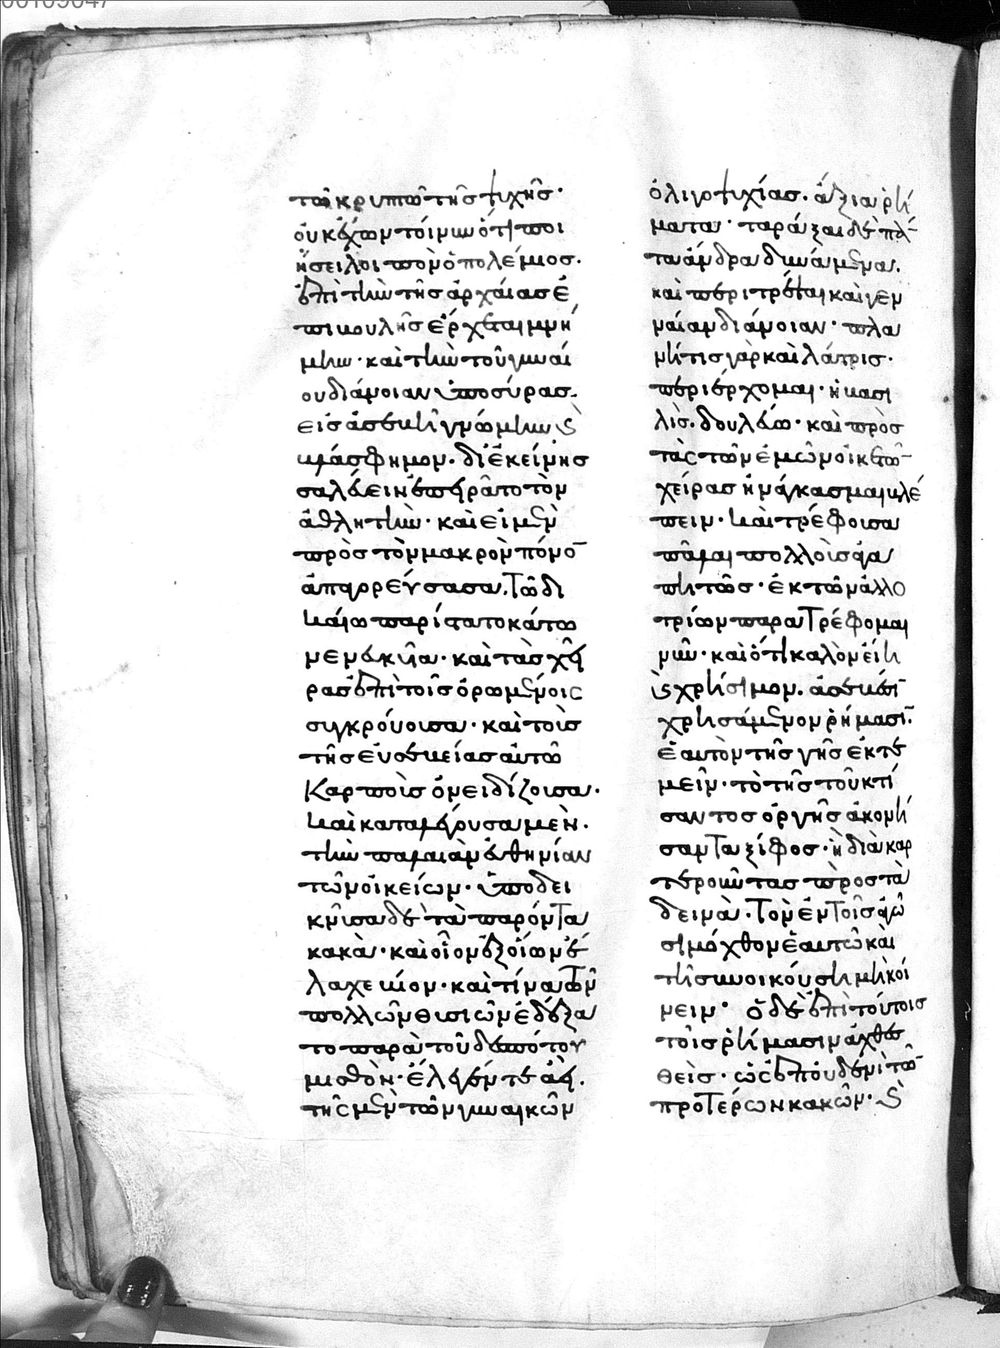 00109047
τῶ κρυπτῶ τῆς ψυχῆς·
οὐκ ἔχων τοίνυν ὅ,τι ποι
ήσει λοιπὸν ὁ πολέμιος.
ἐπὶ τὴν τῆς ἀρχαίας ἐ
πιβουλῆς ἔρχεται μνή
μην· καὶ τὴν τοῦ γυναί
ου διάνοιαν ὑποσύρας.
εἰς ἀσεβῆ γνώμην κ(αὶ)
βλάσφημον. δι' ἐκείνης
σαλεύειν ἐπειρᾶτο τὸν
ἀθλητήν· καὶ εἰ μὲν
πρὸς τὸν μακρὸν πόνο(ν)
ἀπαρρεύσασα. τῶ δι
καίω παρίστατο κάτω
νενευκυῖα· καὶ τὰς χεῖ
ρας ἐπὶ τοῖς ὁρωμένοις
συγκρούουσα· καὶ τοῖς
τῆς εὐσεβείας αὐτῶ
καρποῖς ὀνειδίζουσα·
καὶ καταλέγουσα μὲν.
τὴν παλαιὰν εὐθηνίαν
τῶν οἰκείων· ὑποδει
κνῦσα δὲ τὰ παρόντα
κακὰ· καὶ οἷον ἐξ οἵων εἴ
λαχε βίον· καὶ τίνα τῶν
πολλῶν θυσιῶν ἐδέξα
το παρὰ τοῦ δεσπότου
μισθὸν· ἔλεγέν τε ἀεὶ.
τῆς μὲν τῶν γυναικῶν
ὀλιγοψυχίας. ἄξια ῥή
ματα· ταράξαι δὲ πά(ν)
τα ἄνδρα δυνάμενα.
καὶ περιτρέψαι καὶ γεν
ναίαν διάνοιαν· πλα
νῆτις γὰρ καὶ λάτρις·
περιέρχομαι· ἡ βασι
λὶς. δουλεύω· καὶ πρὸς
τὰς τῶν ἐμῶν οἰκετῶ(ν)
χεῖρας ἠνάγκασμαι βλέ
πειν· καὶ τρέφουσα
πάλαι πολλοὺς ἅ
παντας· ἐκ τῶν ἀλλο
τρίων παρατρέφομαι
νῦν· καὶ ὅτι καλὸν εἴη
κ(αὶ) χρήσιμον. ἀσεβέσι(ν)
χρησάμενον ῥήμασι(ν).
ἑαυτὸν τῆς γῆς ἐκτε
μεῖν· τὸ τῆς τοῦ κτί
σαντος ὀργῆς ἀκονή
σαντα ξίφος· ἢ διὰ καρ
τεροῦντας πρὸς τὰ
δεινὰ. τὸν ἐν τοῖς ἀγῶ
σι μόχθον ἑαυτῶ καὶ
τῆ συνοικούση μὴ κοι
νεῖν· ὁ δὲ ἐπὶ τούτοις
τοῖς ῥήμασιν ἀχθε
θεὶς. ὡς ἐπ' οὐδενὶ τῶ(ν)
προτέρων κακῶν· κ(αὶ)